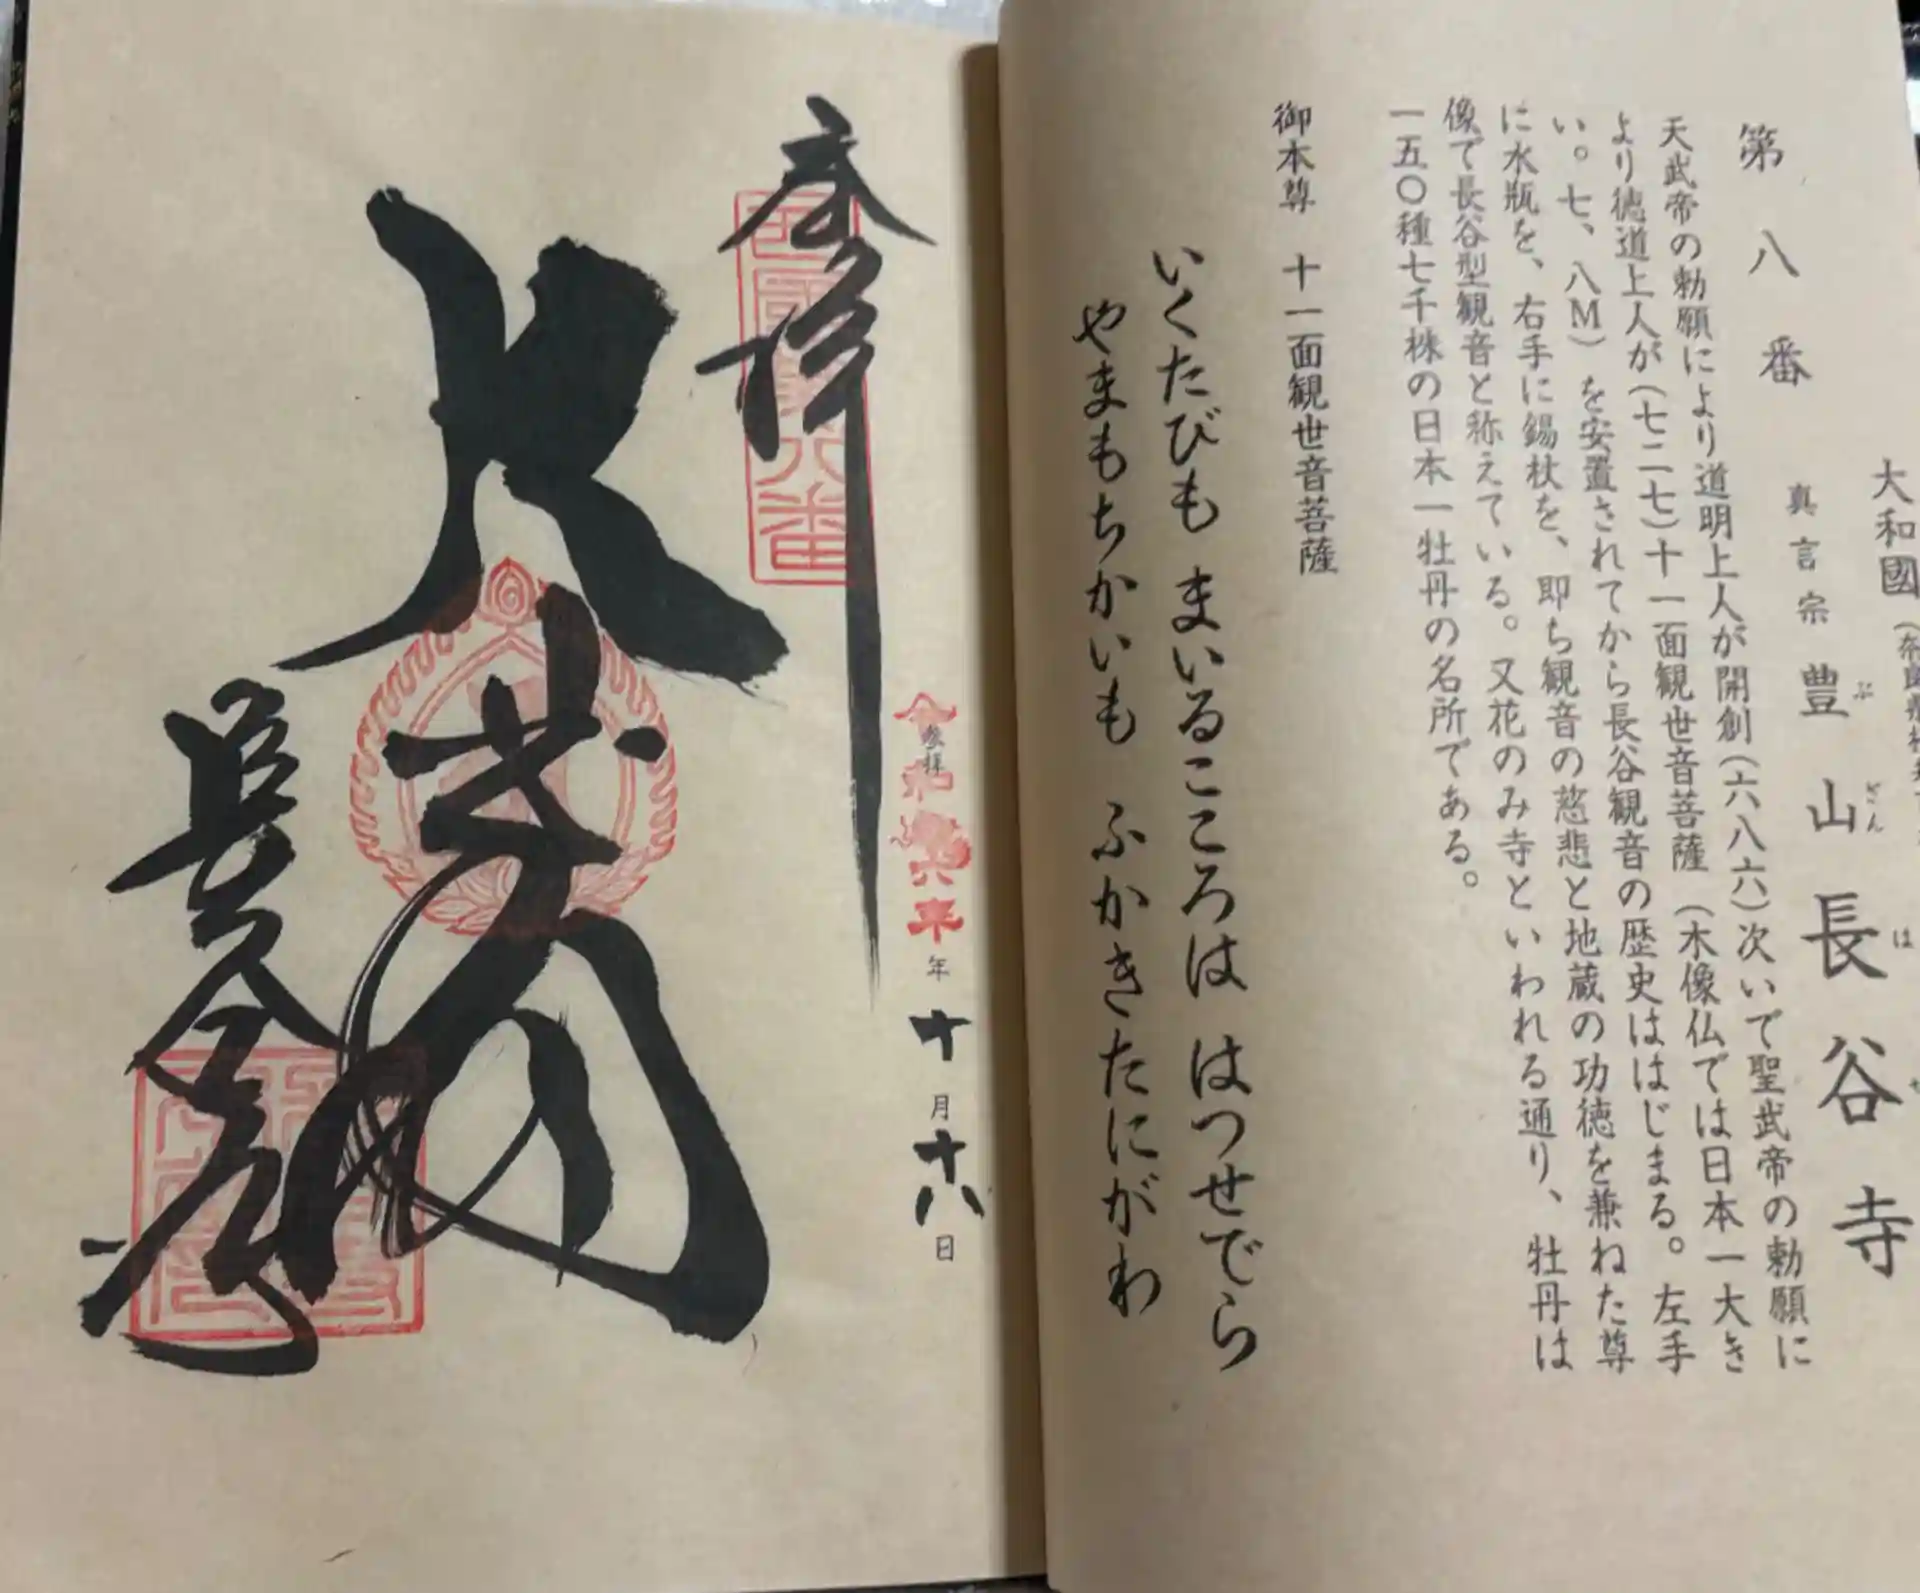 大和國
第八番 真言宗 豊山長谷寺
ぶ ざん は せ
天武帝の勅願により道明上人が開創(六八六)次いで聖武帝の勅願に
より徳道上人が(七二七)十一面観世音菩薩(木像仏では日本一大き
い。七、八M)を安置されてから長谷観音の歴史ははじまる。左手
に水瓶を、右手に錫杖を、即ち観音の慈悲と地蔵の功徳を兼ねた尊
像で長谷型観音と称えている。又花のみ寺といわれる通り、牡丹は
一五〇種七千株の日本一牡丹の名所である。
御本尊 十一面観世音菩薩
いくたびも まいるこころは はつせでら
やまもちかいも ふかきたにがわ
参拝
令和六年
年 十月十八日
奉拝
大悲閣
長谷寺